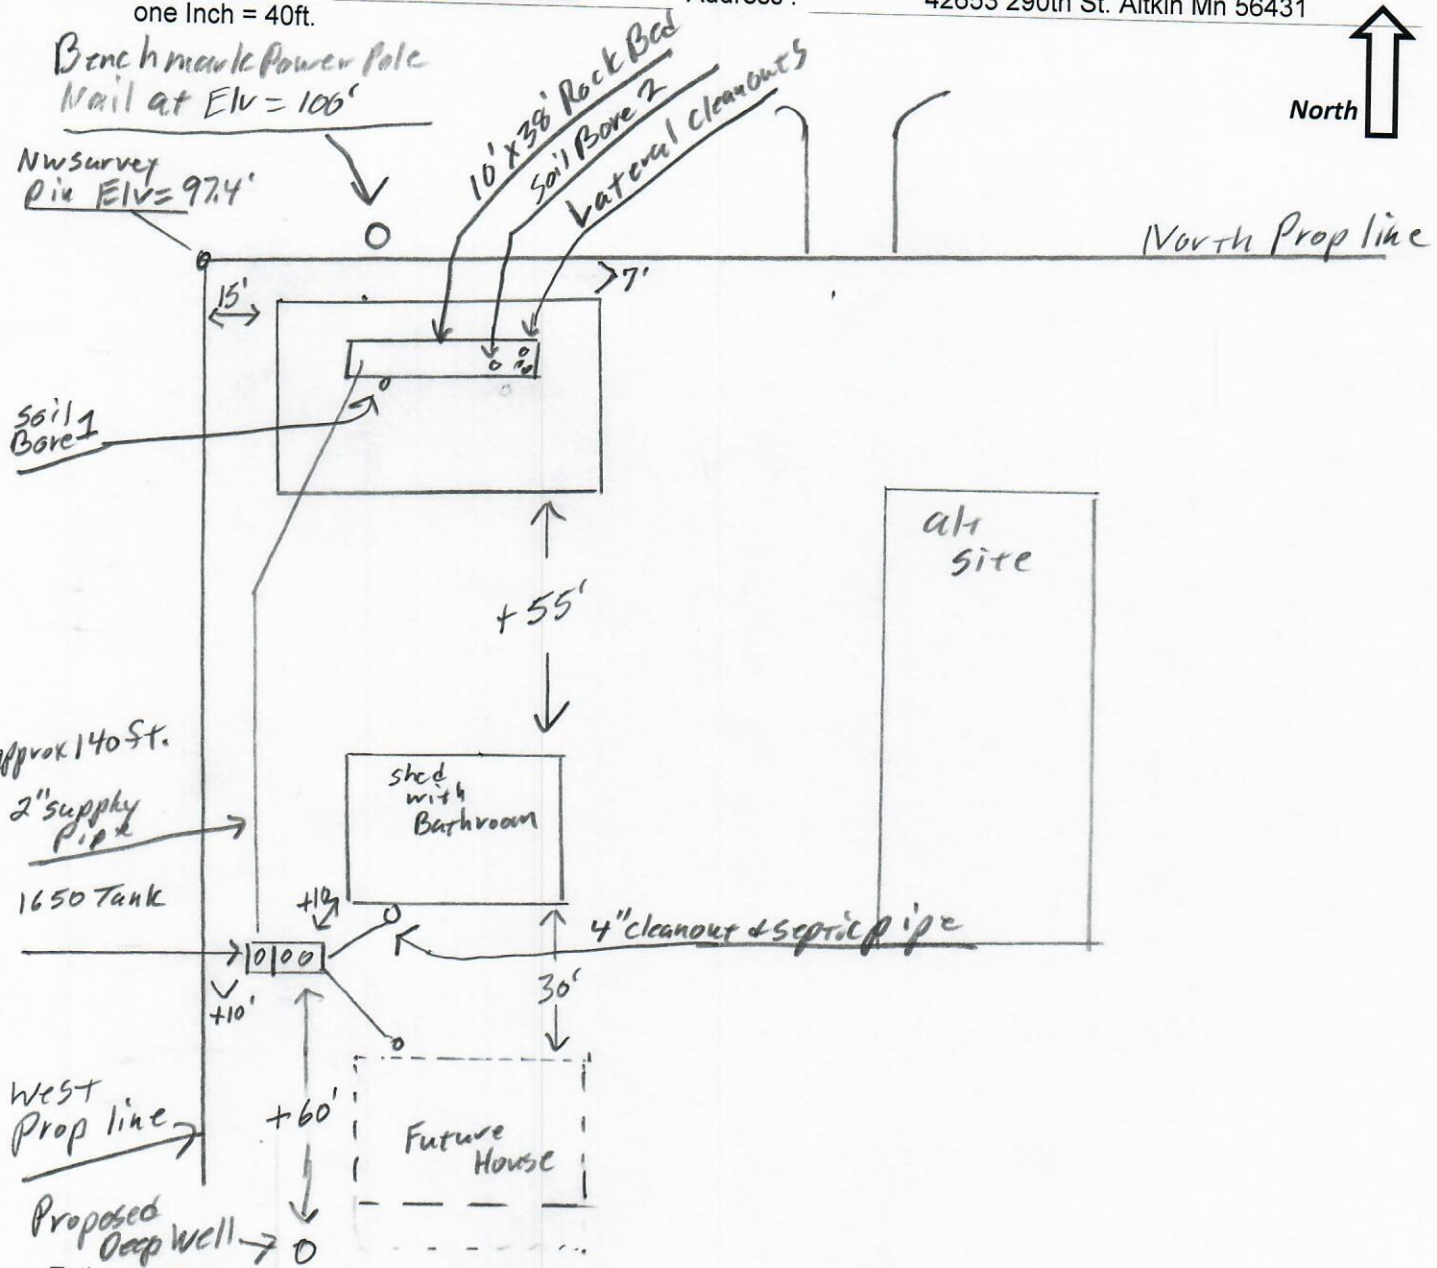 one Inch = 40ft.
42653 290th St. Aitkin Mn 56431
North
Benchmark Power Pole
Nail at Elv = 100'
NW survey
Pin Elv = 97.4'
10' x 38' Rock Bed
Soil Bore 2
Lateral Cleanouts
North Prop line
7'
15'
Soil 1
Bore
alt
site
+55'
approx 140 ft.
2" supply
Pipe
shed
with
Bathroom
1650 Tank
+10
4" cleanout & septic pipe
30'
+10'
West
Prop line
+60'
Future
House
Proposed
Deep Well